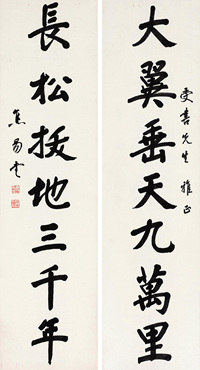 先生 雅正
大翼垂天九萬里
長松拔地三千年
焦易堂